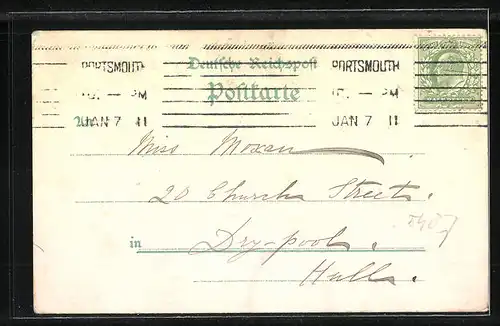 PORTSMOUTH
PM
JAN 7 11
Deutsche Reichspost
Postkarte
PORTSMOUTH
PM
JAN 7 11
An
Miss Moxan
20 Church Street.
in Dry-pool.
Hull.